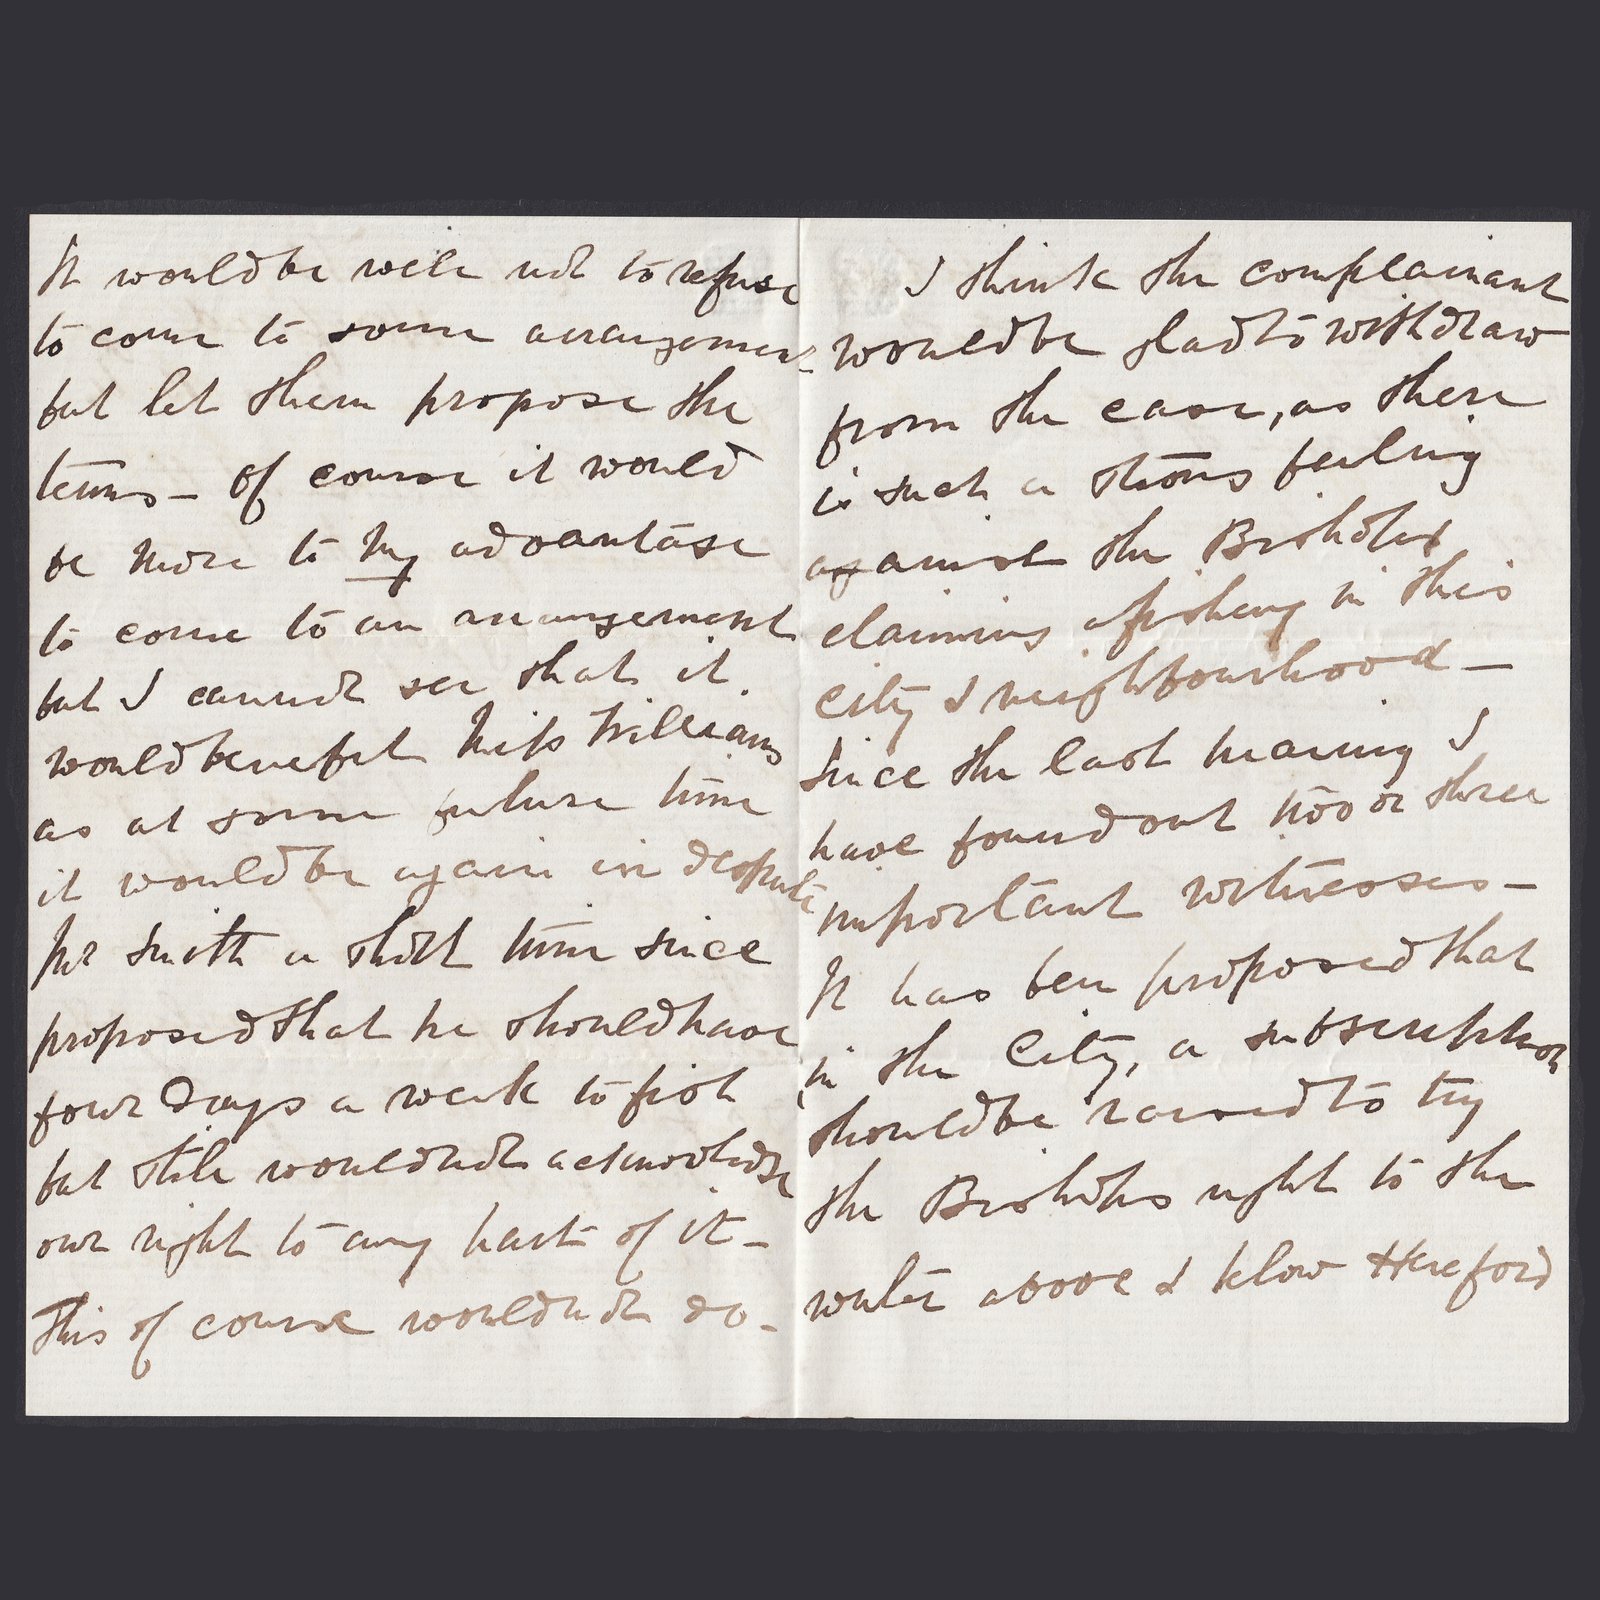 It would be well not to refuse
to come to some arrangement
but let them propose the
terms - of course it would
be more to my advantage
to come to an arrangement
but I cannot see that it
would benefit Miss Williams
as at some future time
it would be again in dispute
Mr Smith a short time since
proposed that he should have
four days a week to fish
but still would not acknowledge
our right to any part of it -
This of course would not do -
I think the complainant
would be glad to withdraw
from the case, as there
is such a strong feeling
against the Bishop
claiming a fishery in this
City & neighbourhood -
Since the last hearing I
have found out two or three
important witnesses -
It has been proposed that
in the City, a subscription
should be raised to try
the Bishops right to the
water above & below Hereford